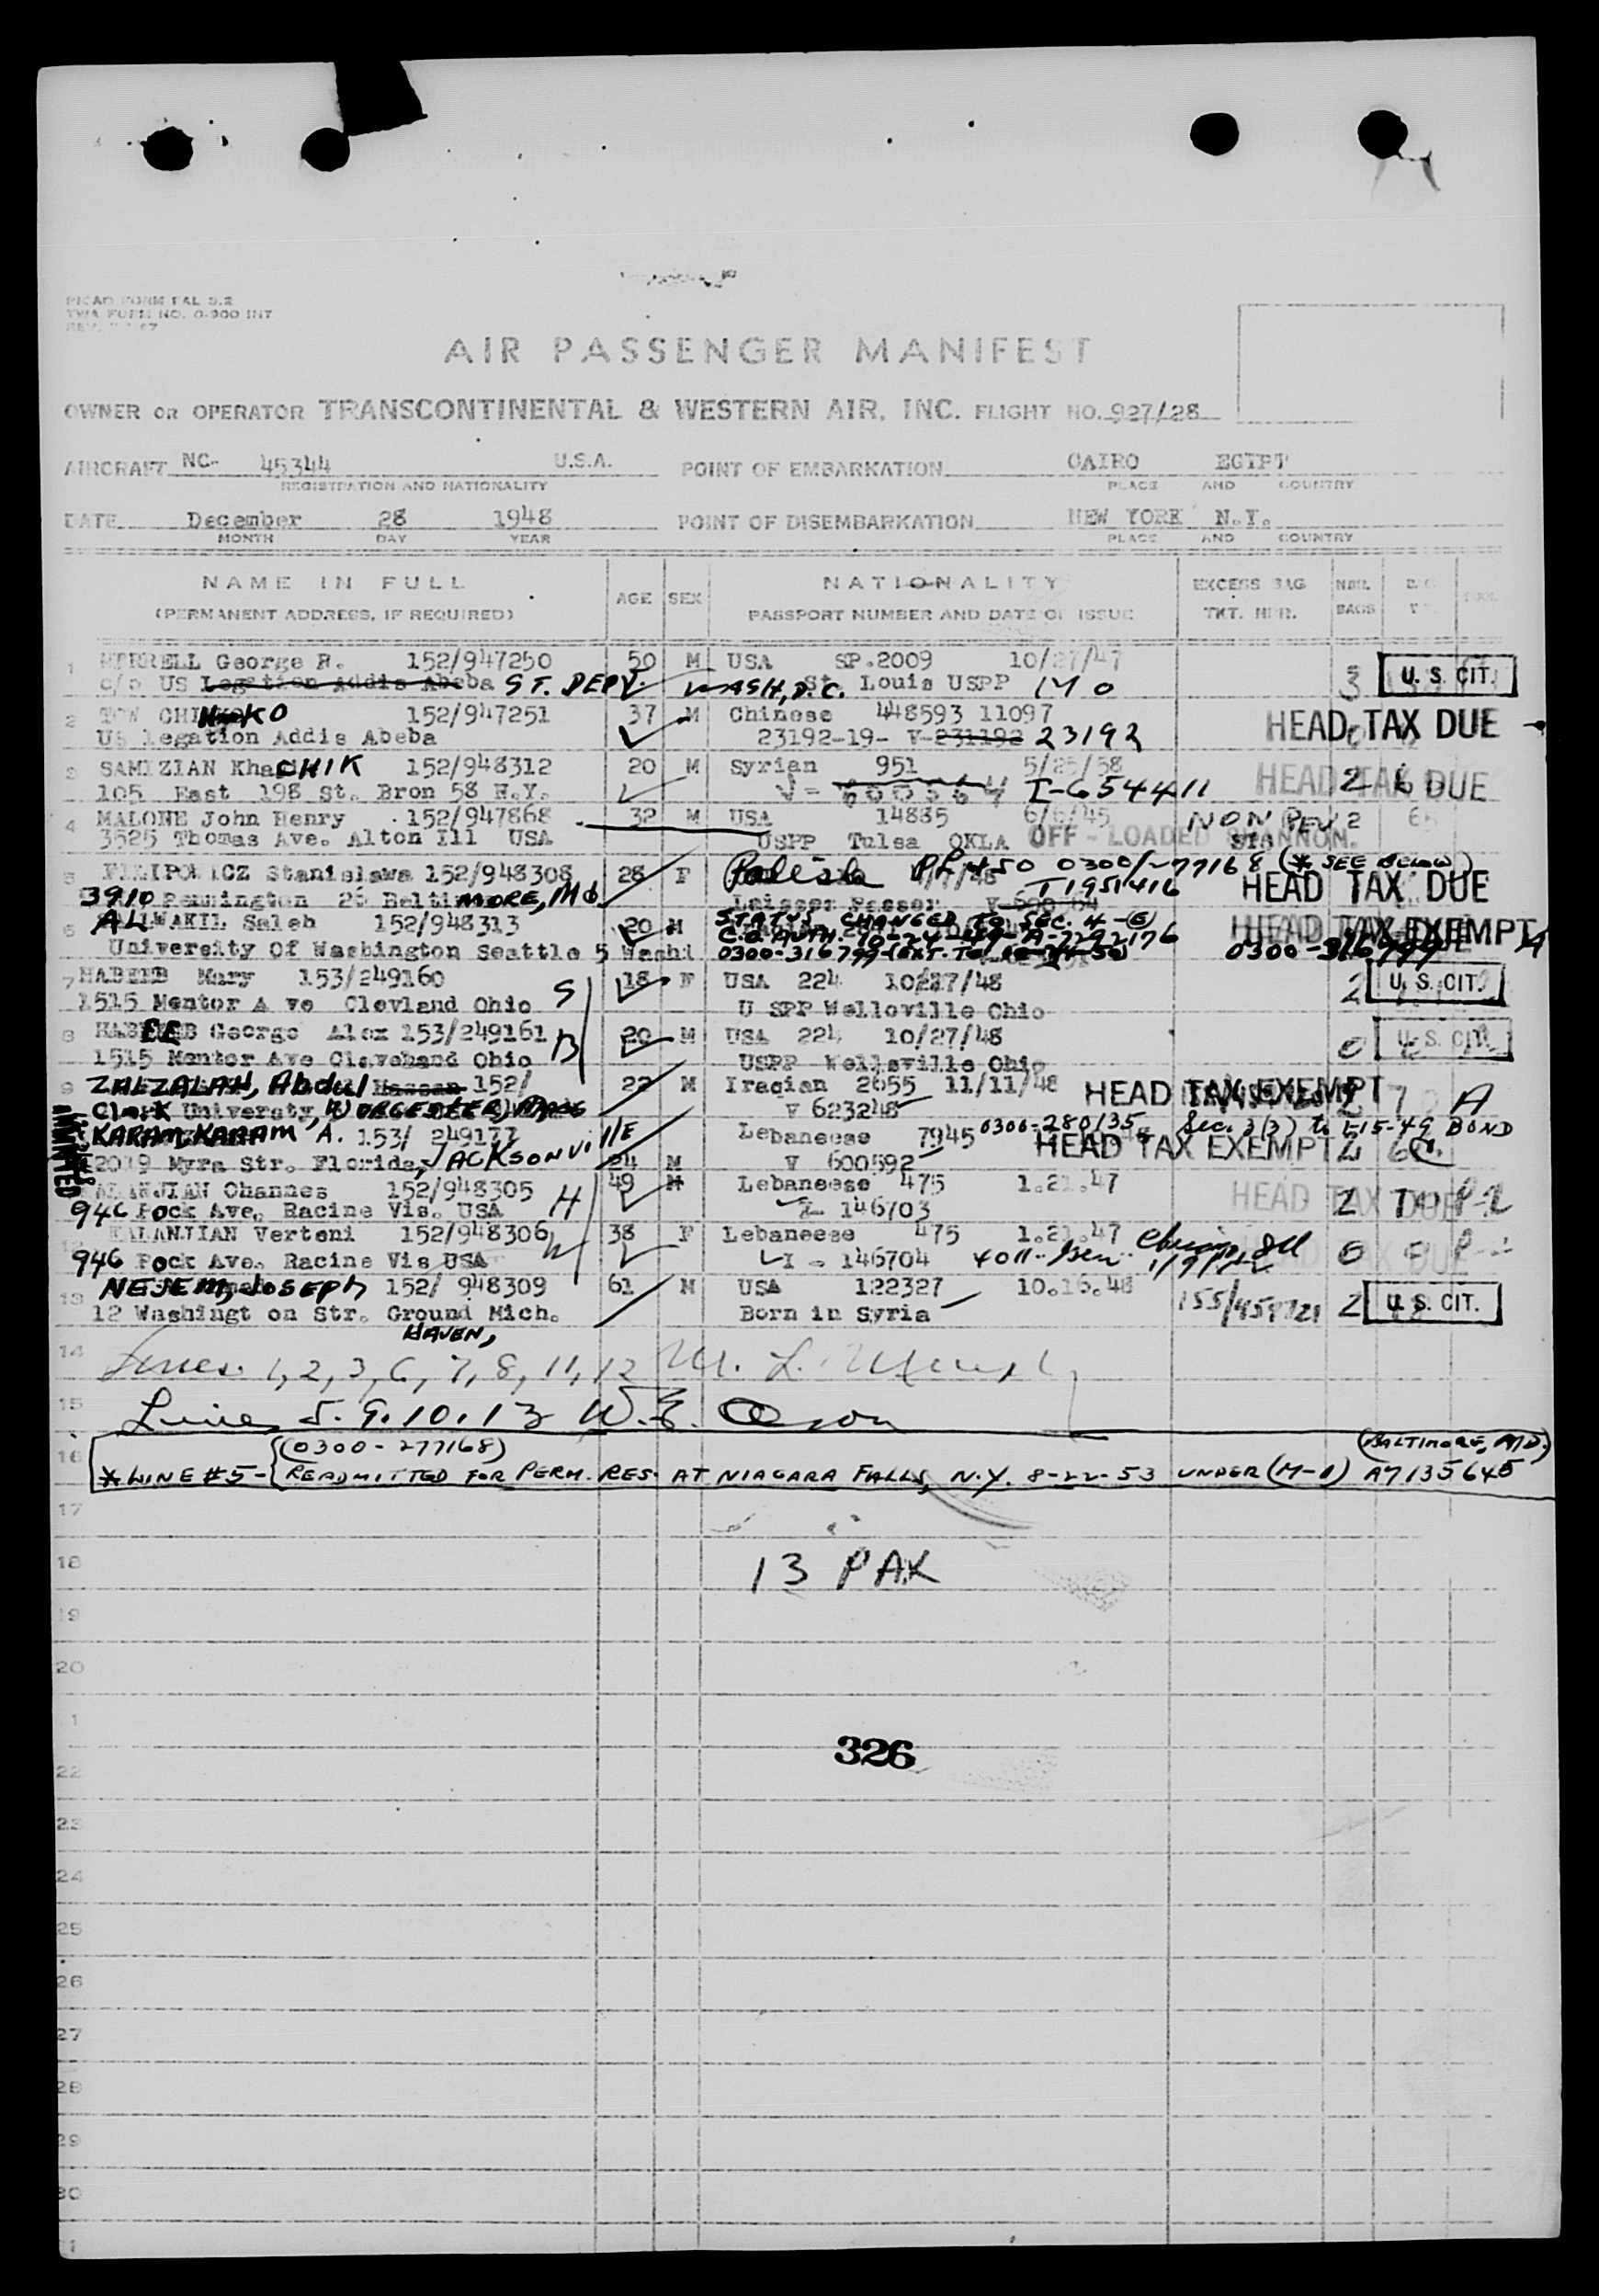 PICAO FORM FAL 2.2
TWA FORM NO. 0-900 INT
AIR PASSENGER MANIFEST
OWNER OR OPERATOR TRANSCONTINENTAL & WESTERN AIR, INC. FLIGHT NO. 927/28
AIRCRAFT NC- 45344 U.S.A. POINT OF EMBARKATION CAIRO EGYPT
REGISTRATION AND NATIONALITY PLACE AND COUNTRY
DATE December 28 1948 POINT OF DISEMBARKATION NEW YORK N.Y.
MONTH DAY YEAR PLACE AND COUNTRY
NAME IN FULL AGE SEX NATIONALITY EXCESS BAG NBR.
(PERMANENT ADDRESS, IF REQUIRED) PASSPORT NUMBER AND DATE OF ISSUE TKT. NBR. BAGS
1 MERRELL George R. 152/947250 50 M USA SP.2009 10/27/47 3 U.S. CIT.
c/o US Legation Addis Abeba ST. DEPT. WASH, D.C. St. Louis USPP MO
2 TOW CHI KO 152/947251 37 M Chinese 448593 11097 HEAD TAX DUE
US Legation Addis Abeba 23192-19- V-231192 23192
3 SAMIZIAN Kha CHIK 152/948312 20 M Syrian 951 5/25/58 HEAD TAX DUE 2
105 East 198 St. Bron 58 N.Y. I-654411
4 MALONE John Henry 152/947868 32 M USA 14885 6/6/45 NON REV 2
3525 Thomas Ave. Alton Ill USA USPP Tulsa OKLA OFF-LOADED SHANNON.
5 FILIPOWICZ Stanislawa 152/948308 28 F Polish 0300/-77168 (* SEE BELOW)
3910 Pennington 26 Baltimore, Md T1951416 HEAD TAX DUE
Laissez Passer
6 AL WAKIL Saleh 152/948313 20 M STATUS CHANGED TO SEC. 4-(E) HEAD TAX EXEMPT
C.O. AUTH. 10-24-49-A-7292176
University Of Washington Seattle 5 Washi 0300-316799-(EXT. TO 0300-316799 A
7 HABEEB Mary 153/249160 18 F USA 224 10/27/48 2 U.S. CIT.
1515 Mentor A ve Clevland Ohio U SPP Wellsville Ohio
8 HABEEB George Alex 153/249161 20 M USA 224 10/27/48 0 U.S. CIT.
1515 Mentor Ave Cleveland Ohio USPP Wellsville Ohio
9 ZALZALAH, Abdul Hassan 152/ 22 M Iraqian 2655 11/11/48 HEAD TAX EXEMPT A
Clark University, WORCESTER, MASS V 623248
KARAM, KARAM A. 153/ 249177 24 M Lebaneese 7945 0300-280135 Sec. 3(3) to BOND
2019 Myra Str. Florida, JACKSONVIllE V 600592 HEAD TAX EXEMPT
ADMITTED
KALANJIAN Ohannes 152/948305 49 M Lebaneese 475 1.21.47 HEAD TAX DUE 2
946 Pock Ave. Racine Vis. USA I- 146703
12 KALANJIAN Verteni 152/948306 38 F Lebaneese 475 1.21.47 HEAD TAX DUE 0
946 Pock Ave. Racine Vis USA I - 146704
13 NEJEM, JOSEPH 152/ 948309 61 M USA 122327 10.16.48 2 U.S. CIT.
12 Washingt on Str. Ground Mich. Born in Syria
HAVEN,
14 Lines 1, 2, 3, 6, 7, 8, 11, 12
15 Lines 5. 9. 10. 13 W.E. Olson
(0300-277168) (BALTIMORE, MD.)
16 * LINE #5- READMITTED FOR PERM. RES. AT NIAGARA FALLS, N.Y. 8-22-53 UNDER (M-1) A7135645
17
18 13 PAX
19
20
326
22
23
24
25
26
27
28
29
30